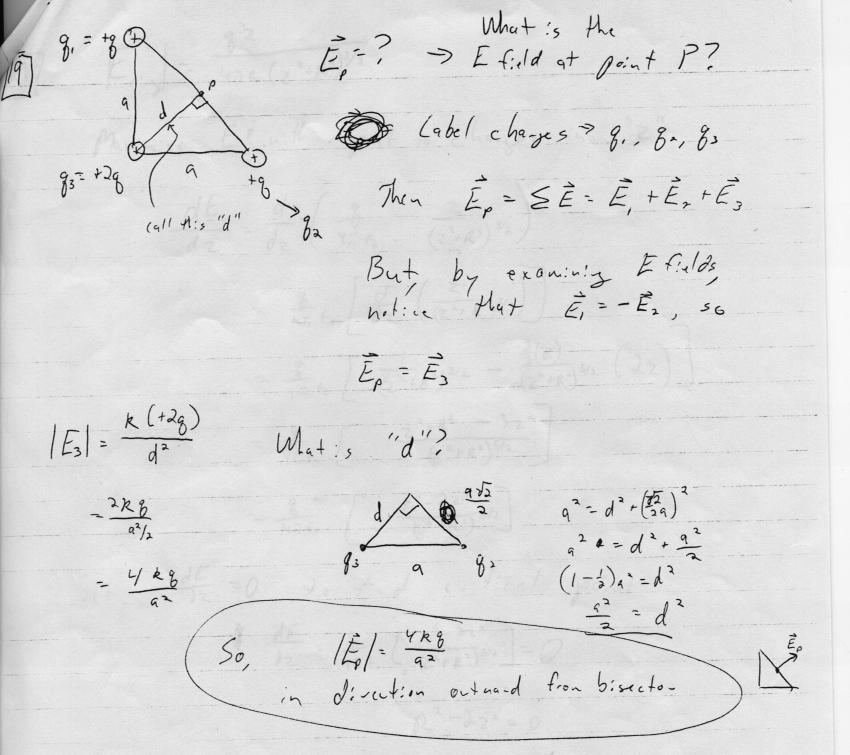 19
q₁ = +q
a
d
P
a
q₃ = +2q
+q
q₂
call this "d"
E⃗p = ? → What is the
E field at point P?
Label charges → q₁, q₂, q₃
Then E⃗p = ΣE⃗ = E⃗₁ + E⃗₂ + E⃗₃
But, by examining E fields,
notice that E⃗₁ = -E⃗₂, so
E⃗p = E⃗₃
|E₃| = k(+2q)/d²
= 2kq/a²/2
= 4kq/a²
What is "d"?
d
a√2/2
q₃
a
q₂
a² = d² + (√2/2a)²
a² = d² + a²/2
(1-½)a² = d²
a²/2 = d²
So, |E⃗p| = 4kq/a²
in direction outward from bisector
E⃗p